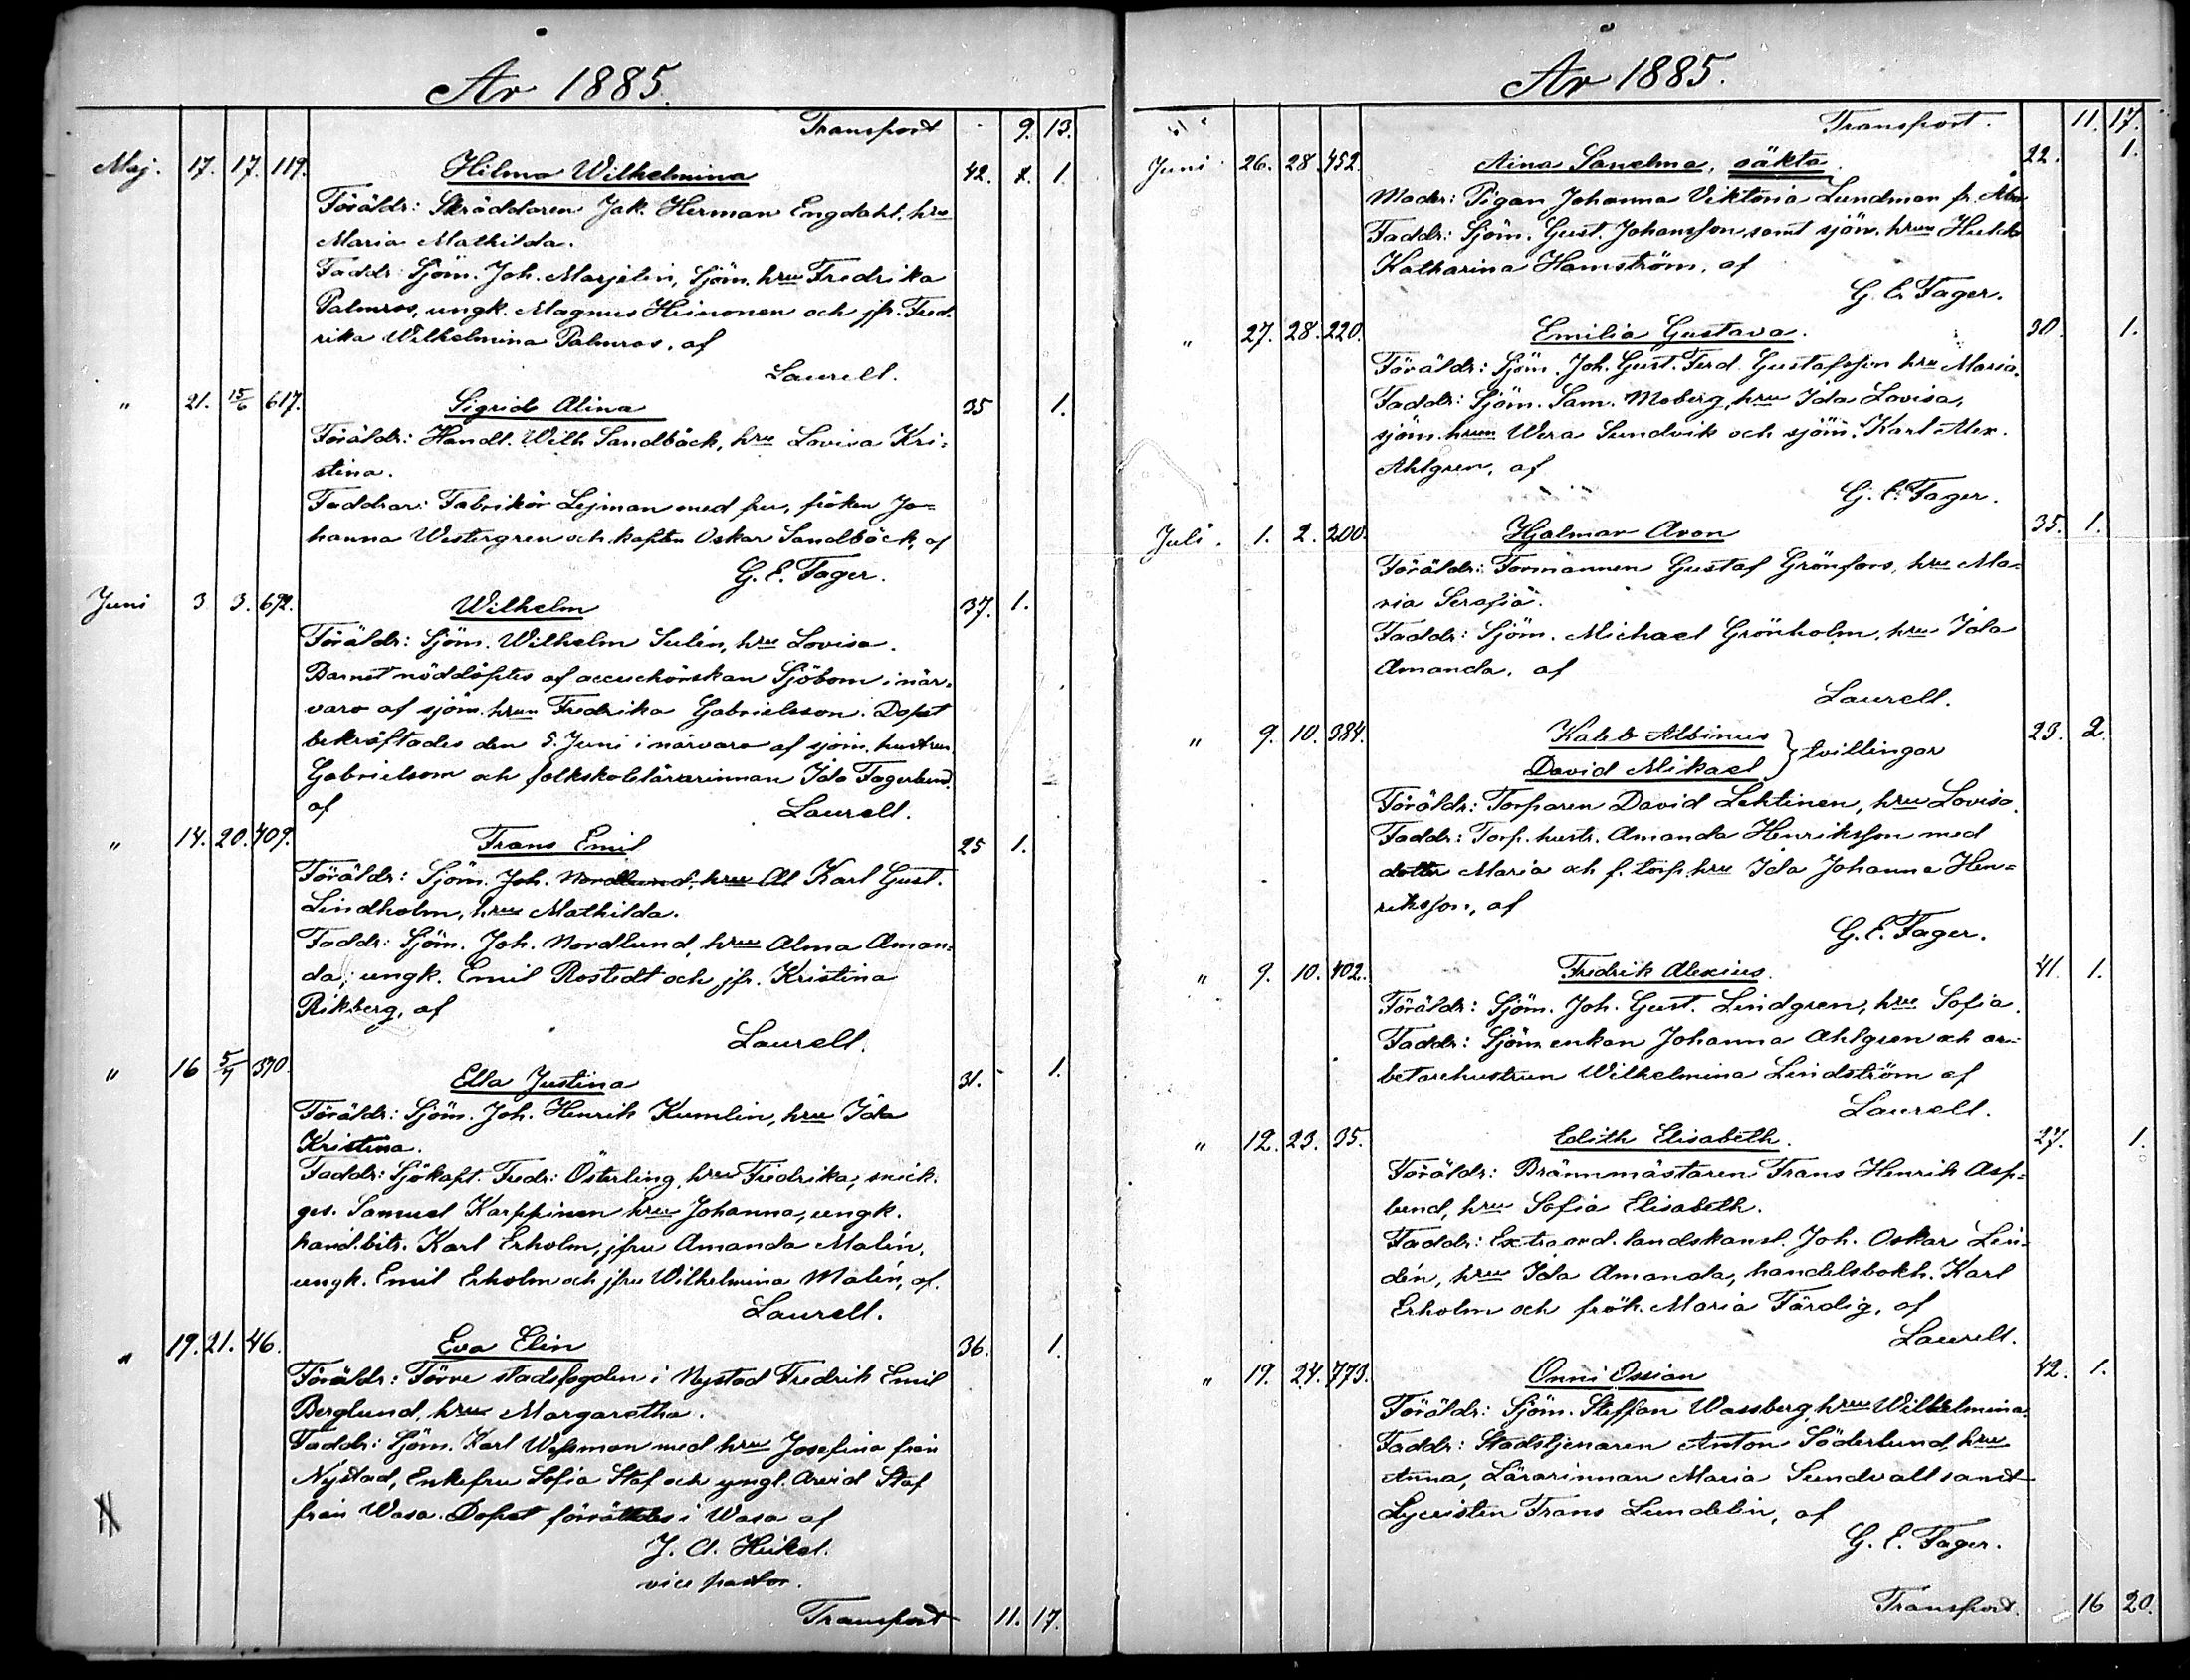 År 1885.
Transport 9. 13.
Maj. 17. 17. 119. Hilma Wilhelmina 42. 1. 1.
Föräldr: Skräddaren Jak. Herman Engdahl, hru
Maria Mathilda.
Faddr: Sjöm. Joh. Marjelin, Sjöm. hru Fredrika
Palmros, ungk. Magnus Heinonen och jfr. Fred-
rika Wilhelmina Palmros, af
Laurell.
" 21. 15/6 617. Sigrid Alina 35 1.
Föräldr: Handl. Wilh. Sandbäck, hru Lovisa Kri-
stina.
Faddrar: Fabrikör Lejman med fru, fröken Jo-
hanna Westergren och kapten Oskar Sandbäck, af
G. E. Fager.
Juni 3 3. 692. Wilhelm 37. 1.
Föräldr: Sjöm. Wilhelm Sulén, hru Lovisa.
Barnet nöddöptes af accuchörskan Sjöbom i när-
varo af sjöm. hrun Fredrika Gabrielsson. Dopet
bekräftades den 5. Juni i närvaro af sjöm. hustrun
Gabrielsson och folkskolelärarinnan Ida Fagerlund,
af Laurell.
" 14. 20. 409. Frans Emil 25 1.
Föräldr: Sjöm. Joh. Nordlund, hru Al Karl Gust.
Lindholm, hru Mathilda.
Faddr: Sjöm. Joh. Nordlund, hru Alma Aman-
da; ungk. Emil Rostedt och jfr. Kristina
Rikberg, af
Laurell.
" 16 5/7 370. Ella Justina 31. 1.
Föräldr: Sjöm. Joh. Henrik Kumlin, hru Ida
Kristina.
Faddr: Sjökapt. Fredr: Österling, hru Fredrika; snick.
ges. Samuel Karppinen hru Johanna, ungk.
hand.bitr. Karl Erholm, jfru Amanda Malén,
ungk. Emil Erholm och jfru Wilhelmina Malén, af.
Laurell.
" 19. 21. 46. Eva Elin 36. 1.
Föräldr: Förre stadsfogden i Nystad Fredrik Emil
Berglund, hru Margaretha.
Faddr: Sjöm. Karl Wessman med hru Josefina från
Nystad, Enkefru Sofia Staf och yngl. Arvid Staf
från Wasa. Dopet förrättades i Wasa af
J. A. Heikel.
vice pastor.
Transport 11. 17.
År 1885.
Transport. 11. 17.
Juni 26. 28. 452. Aina Sanelma, oäkta 22. 1.
Moder: Pigan Johanna Viktoria Lundman fr. Åbo
Faddr: Sjöm. Gust. Johansson samt sjöm. hrun Hulda
Katharina Hamström, af
G. E. Fager.
" 27. 28. 220. Emilia Gustava. 30. 1.
Föräldr: Sjöm. Joh. Gust. Ferd. Gustafsson hru Maria.
Faddr: Sjöm. Sam. Moberg, hru Ida Lovisa,
sjöm. hrun Wera Sundvik och sjöm. Karl Alex.
Ahlgren, af
G. E. Fager.
Juli. 1. 2. 200. Hjalmar Aron 35. 1.
Föräldr: Formannen Gustaf Grönfors, hru Ma-
ria Serafia.
Faddr: Sjöm. Michael Grönholm, hru Ida
Amanda, af
Laurell.
" 9. 10. 384. Kaleb Albinus 23. 2.
David Mikael } tvillingar
Föräldr: Torparen David Lehtinen, hru Lovisa.
Faddr: Torp. hustr. Amanda Henriksson med
dotter Maria och f. torp. hru Ida Johanna Hen-
riksson, af
G. E. Fager.
" 9. 10. 402. Fredrik Alexius. 41. 1.
Föräldr: Sjöm. Joh. Gust. Lindgren, hru Sofia.
Faddr: Sjöm. enkan Johanna Ahlgren och ar-
betarehustrun Wilhelmina Lindström af
Laurell.
" 12. 23. 35. Edith Elisabeth. 27. 1.
Föräldr: Brännmästaren Frans Henrik Asp-
lund, hru Sofia Elisabeth.
Faddr: Extraord. landskansl. Joh. Oskar Lin-
dén, hru Ida Amanda, handelsbokh. Karl
Erholm och frök. Maria Färdig, af
Laurell.
" 19. 24. 773. Onni Ossian 42. 1.
Föräldr: Sjöm. Steffan Wassberg, hru Wilhelmina.
Faddr: Stadstjenaren Anton Söderlund, hru
Anna, Lärarinnan Maria Sundvall samt
Lyceisten Frans Lundelin, af
G. E. Fager.
Transport. 16 20.